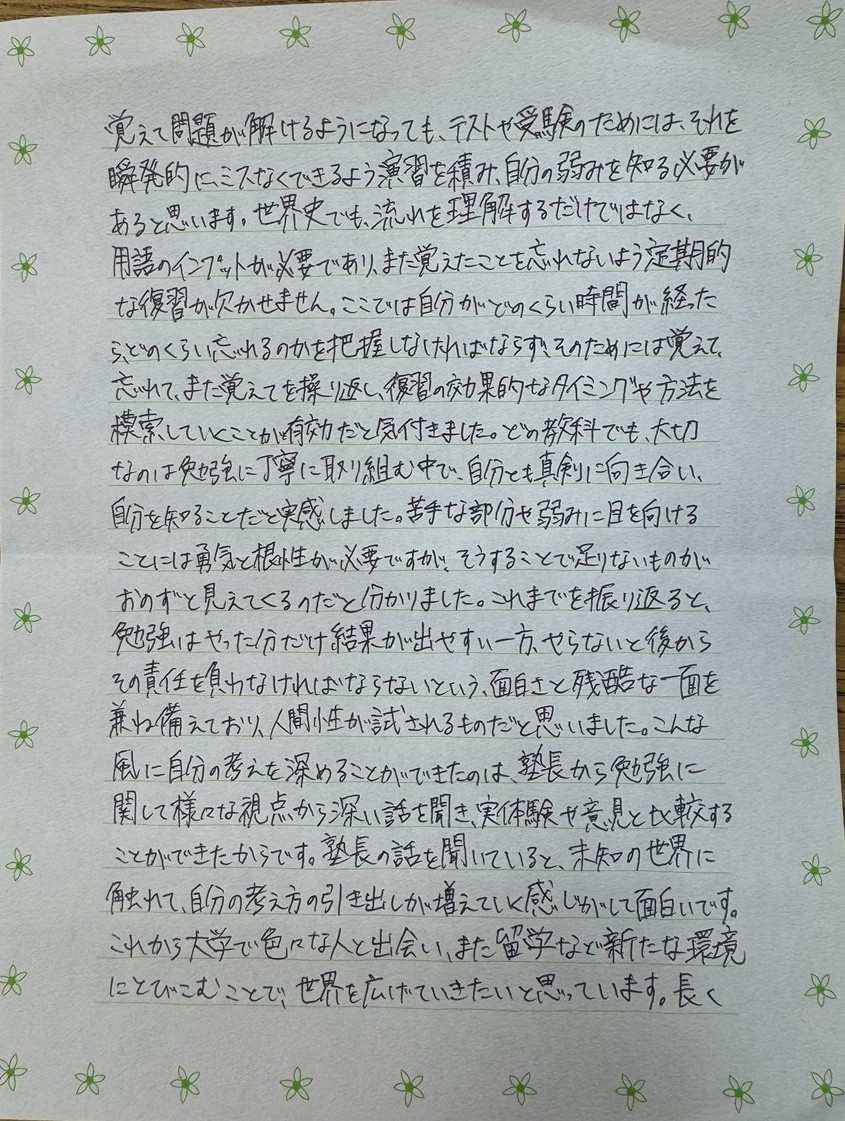 覚えて問題が解けるようになっても、テストや受験のためには、それを
瞬発的に、ミスなくできるよう演習を積み、自分の弱みを知る必要が
あると思います。世界史でも、流れを理解するだけではなく、
用語のインプットが必要であり、また覚えたことを忘れないよう定期的
な復習が欠かせません。ここでは自分がどのくらい時間が経った
ら、どのくらい忘れるのかを把握しなければならず、そのためには覚えて、
忘れて、また覚えてを操り返し、復習の効果的なタイミングや方法を
模索していくことが有効だと気付きました。どの教科でも、大切
なのは勉強に丁寧に取り組む中で、自分とも真剣に向き合い、
自分を知ることだと実感しました。苦手な部分や弱みに目を向ける
ことには勇気と根性が必要ですが、そうすることで足りないものが
おのずと見えてくるのだと分かりました。これまでを振り返ると、
勉強はやった分だけ結果が出やすい一方、やらないと後から
その責任を負わなければならないという、面白さと残酷な一面を
兼ね備えており、人間性が試されるものだと思いました。こんな
風に自分の考えを深めることができたのは、塾長から勉強に
関して様々な視点から深い話を聞き、実体験や意見と比較する
ことができたからです。塾長の話を聞いていると、未知の世界に
触れて、自分の考え方の引き出しが増えていく感じがして面白いです。
これから大学で色々な人と出会い、また留学など新たな環境
にとびこむことで、世界を広げていきたいと思っています。長く